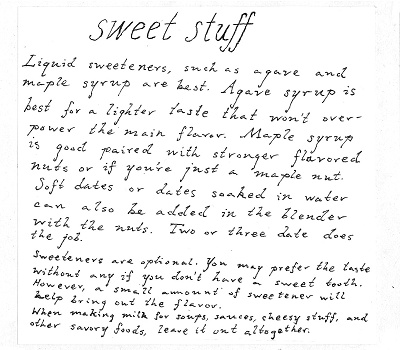 sweet stuff
Liquid sweeteners, such as agave and
maple syrup are best. Agave syrup is
best for a lighter taste that won't over-
power the main flavor. Maple syrup
is good paired with stronger flavored
nuts or if you're just a maple nut.
Soft dates or dates soaked in water
can also be added in the blender
with the nuts. Two or three date does
the job.
Sweeteners are optional. You may prefer the taste
without any if you don't have a sweet tooth.
However, a small amount of sweetener will
help bring out the flavor.
When making milk for soups, sauces, cheesy stuff, and
other savory foods, leave it out altogether.